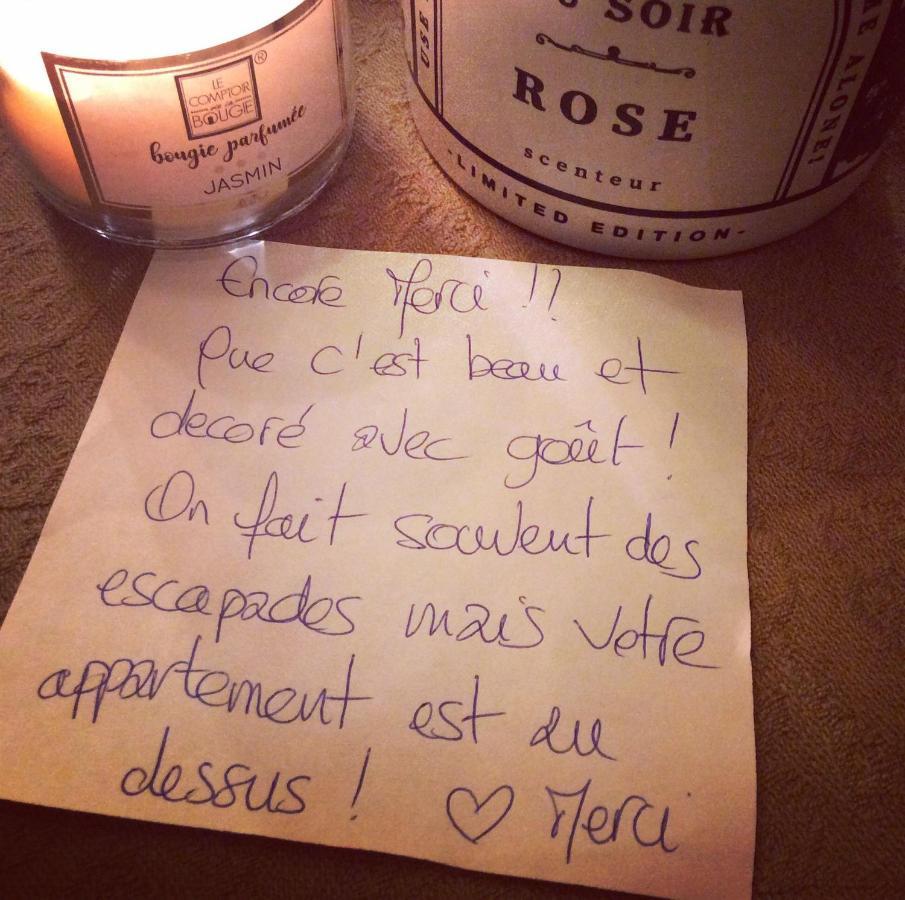 LE
COMPTOIR
DE LA
BOUGIE
®
bougie parfumée
JASMIN
USE
SOIR
ROSE
scenteur
-LIMITED EDITION-
ME ALONE!
Encore Merci !!
Que c'est beau et
decoré avec goût !
On fait souvent des
escapades mais votre
appartement est au
dessus ! ♡ Merci